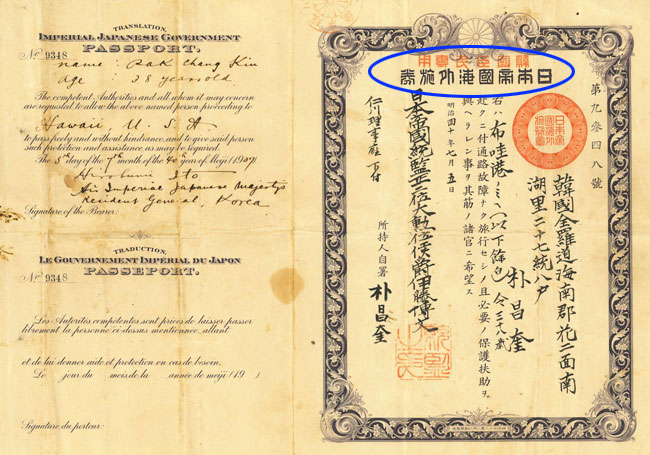 TRANSLATION.
IMPERIAL JAPANESE GOVERNMENT
PASSPORT.
No 9348
name: Pak Chang Kiu
age 38 years old
The competent Authorities and all whom it may concern
are requested to allow the above named person proceeding to
Hawaii, U. S. A
to pass freely and without hindrance, and to give said person
such protection and assistance as may be required.
The 5th Day of the 7th month of the 40th year of Meiji (1907)
Hirobumi Ito
His Imperial Japanese Majesty's
Resident General, Korea
Signature of the Bearer:
TRADUCTION.
LE GOUVERNEMENT IMPÉRIAL DU JAPON
PASSEPORT.
No 9348
Les Autorités compétentes sont priées de laisser passer
librement la personne ci-dessus mentionnée, allant
et de lui donner aide et protection en cas de besoin.
Le jour du mois de la année de meiji (19 )
Signature du porteur:
日本帝國海外旅券
第九参四八號
韓國全羅道海南郡花二面南
湖里二十七統八戸
朴昌奎
今三十八歳
右ハ布哇港
赴クニ付通路故障ナク旅行セシメ且必要ノ保護扶助ヲ
與ヘラレン事ヲ其筋ノ諸官ニ希望ス
明治四十年七月五日
日本帝國統監正二位大勲位侯爵伊藤博文
所持人自署
朴昌奎